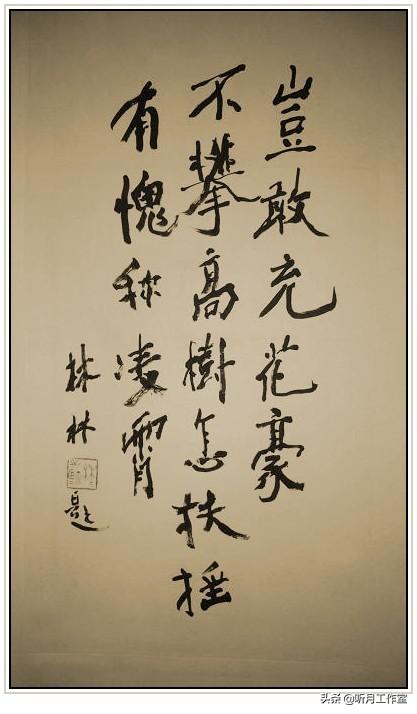 豈敢充花豪
不攀高樹怎扶摇
有愧称凌霄
林林
题
头条 @听月工作室